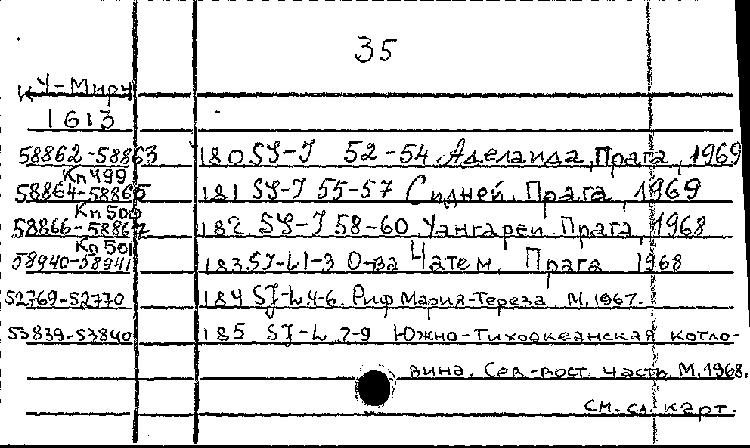 35
К-У-Мирн
1613
58862-58863 180 SY-J 52-54 Аделаида, Прага, 1969
Кп 499
58864-58865 181 SY-J 55-57 Сидней. Прага, 1969
Кп 500
58866-58867 182 SY-J 58-60 Уангареи. Прага, 1968
Кп 501
58940-58941 183 SJ-L1-3 О-ва Чатем. Прага 1968
52769-52770 184 SJ-L4-6. Риф Мария-Тереза М. 1967.
53839-53840 185 SJ-L 7-9 Южно-Тихоокеанская котло-
вина. Сев-вост. часть М. 1968.
см. сл. карт.